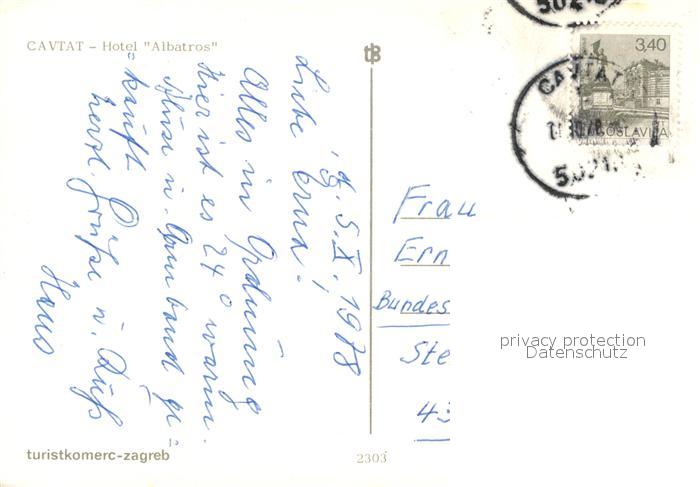 CAVTAT – Hotel "Albatros"
d. 5. X. 1978
Liebe Erna!
Alles in Ordnung
hier ist es 24° warm.
Bluse u. Armband ge=
kauft
herzl. Grüße u. Kuß
Hans
turistkomerc-zagreb
2303
Frau
Ern
Bundes
Ste
43
privacy protection
Datenschutz
3,40
JUGOSLAVIJA
CAVTAT